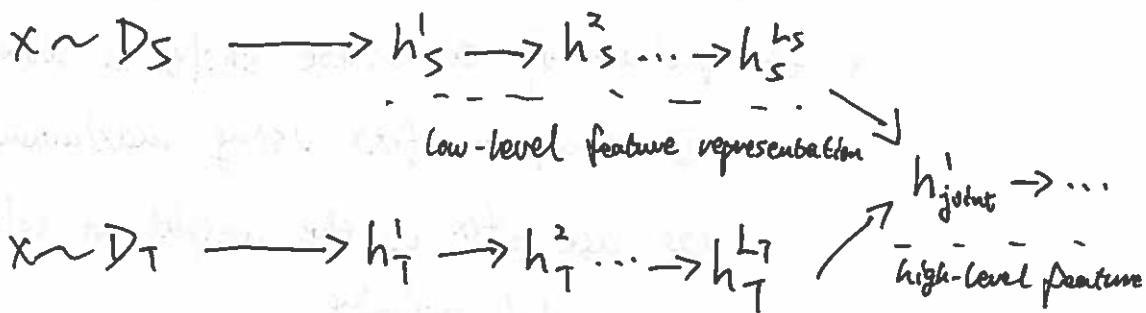 x ~ D_S → h_S^1 → h_S^2 ... → h_S^{L_S}
low-level feature representation
h_{joint}^1 → ...
x ~ D_T → h_T^1 → h_T^2 ... → h_T^{L_T}
high-level feature